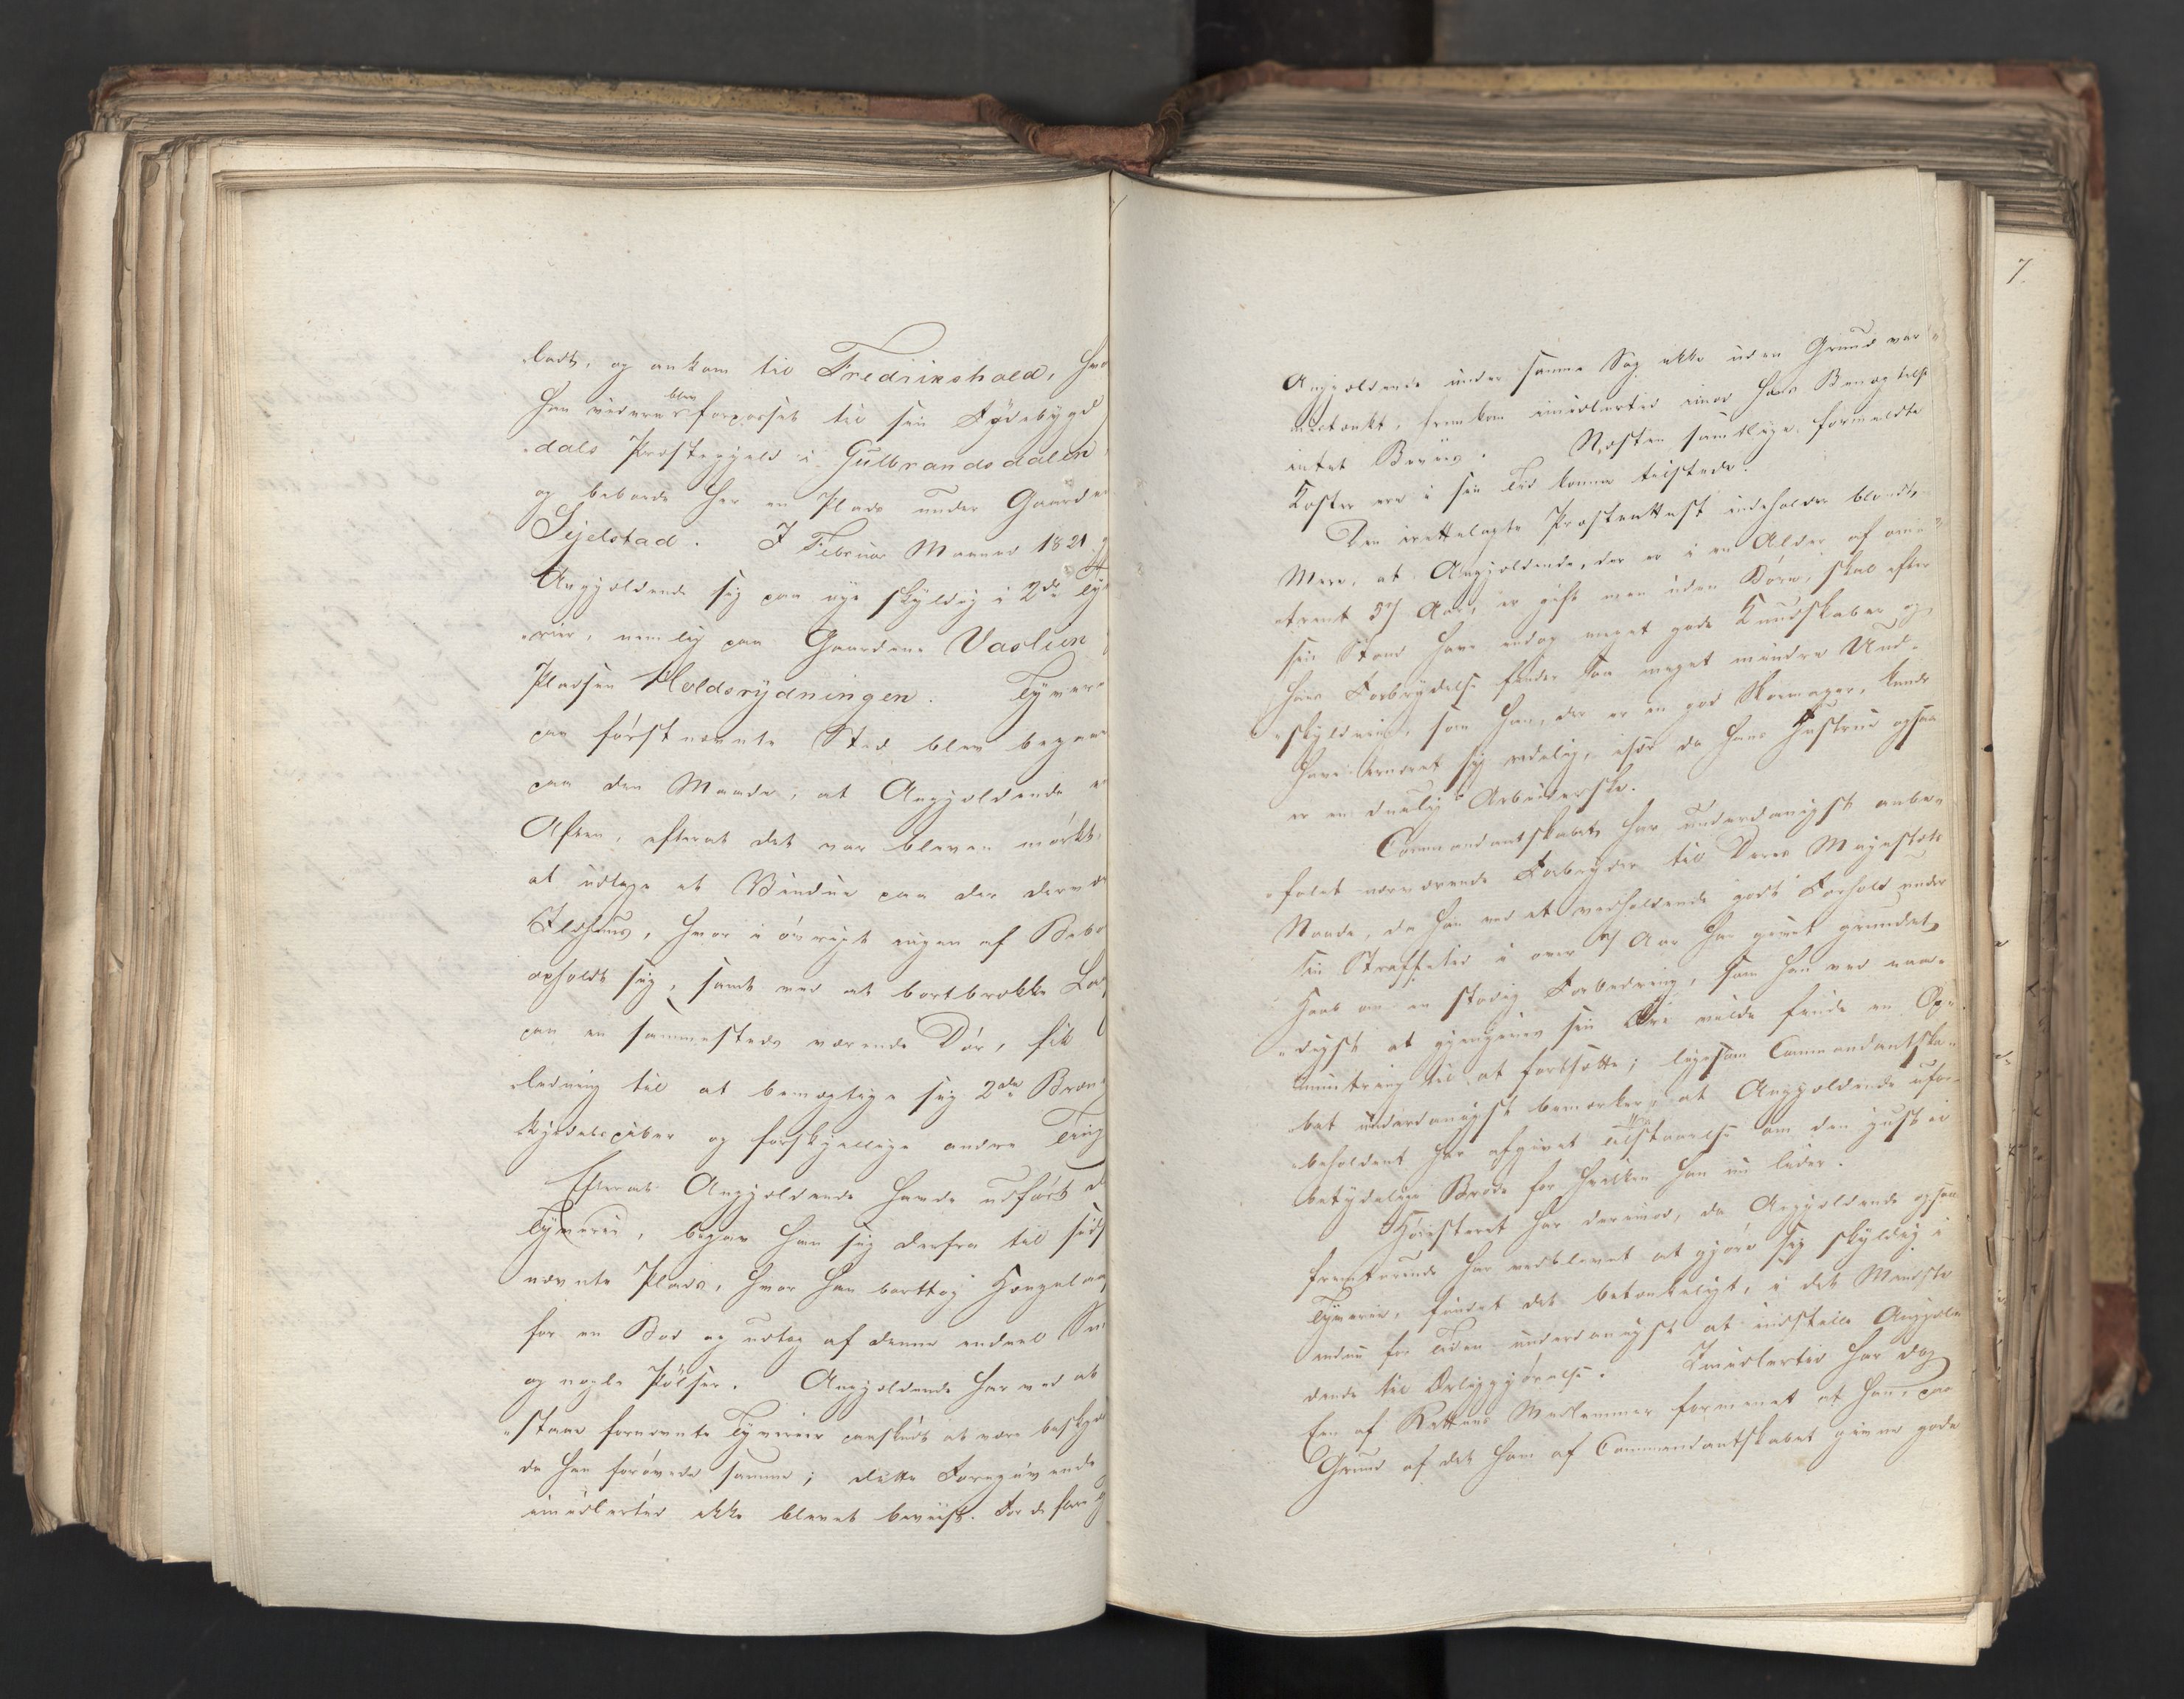 „ladt, og ankom til Fredrikshald, hvo
han videre blev forpasset til sin Fødebygd
„dals Præstegjeld i Gulbrandsdalen,
og beboede her en Plads under Gaarden
Sijelstad. I Februar Maaned 1821. g
Angjældende sig paa nye skyldig i 2de Ty
„rier, nemlig paa Gaardene Vaslien
Pladsen Holdsrydningen. Tyver
paa førstnævnte Sted blev begaae
paa den Maade, at Angjældende e
Aften, efterat det var bleven mørkt,
at udtage et Vindue paa der være
Ildhuus, hvor i øvrigt ingen af Bebo
opholdt sig, samt ved at bortbrække Laa
paa en sammesteds værende Dør, fik
„ledning til at bemægtige sig 2de Bræn
Kjedelpiber og forskjellige andre Ting
Efterat Angjældende havde udført d
Tyverie, begav han sig derfra til sids
nævnte Plads, hvor han borttog Hængelaas
for en Bod og udtog af denne endeel
og nogle Pølser. Angjældende har ved at
„staae fornævnte Tyverier paaskudt at være beskjæ
da han forøvede samme; dette Foregivende
imidlertid ikke blevet beviist. For de flere
7.
Angjældende under samme Sag ikke uden Grund var
mistænkt, fremkom imidlertid imod hans Benægtelse
intet Beviis. Næsten samtlige formeldte
Koster ere i sin Tid komne tilstede.
Den irettelagte Præsteattest indeholder blandt
Mere, at Angjældende, der er i en Alder af om„
„trent 37 Aar, er gift men uden Børn, skal efter
sin Stand have endog meget gode Kundskaber og
hans Forbrydelse finder saa meget mindre Und„
„skyldning, som han, der er en god Skomager, kunde
have ernæret sig redelig, især da hans Hustrue ogsaa
er en duelig Arbeiderske.
Commandantskabet har underdanigst anbe„
„falet nærværende Forbryder til Deres Majestæts
Naade, da han ved et vedholdende godt Forhold under
sin Straffetid i over 7 Aar har givet grundet
Haab om en stadig Forbedring, som han ved naa„
„digst at gjengives sin Frie vilde finde en Op„
muntring til at fortsætte; ligesom Commandantska„
„bet underdanigst bemærker, at Angjældende ufor„
„beholdent har afgivet Tilstaaelse om den just ei
betydelige Brøde for hvilken han nu lider.
Høiesteret har derimod, da Angjældende ogsaa
fremturende har vedblevet at gjøre sig skyldig i
Tyverie, fundet det betænkeligt, i det Mindste
endnu for Tiden underdanigst at indstille Angjæl„
dende til Løsgivelse. Imidlertid har dog
Een af Rettens Medlemmer formeent at han, paa
Grund af det ham af Commandantskabet givne gode